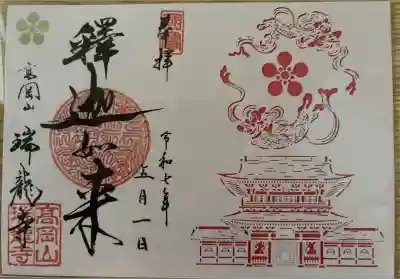 奉拝
令和七年
五月一日
釋迦如来
高岡山
瑞龍寺
高岡山
瑞龍寺